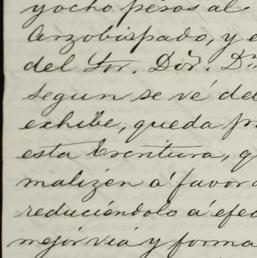 yocho pesos al
Arzobispado, y e
del Sor. Dor. Dn
segun se vé del
exhibe, queda pr
esta Escritura, q
malizen á favor d
reduciéndolo á efec
mejor via y forma